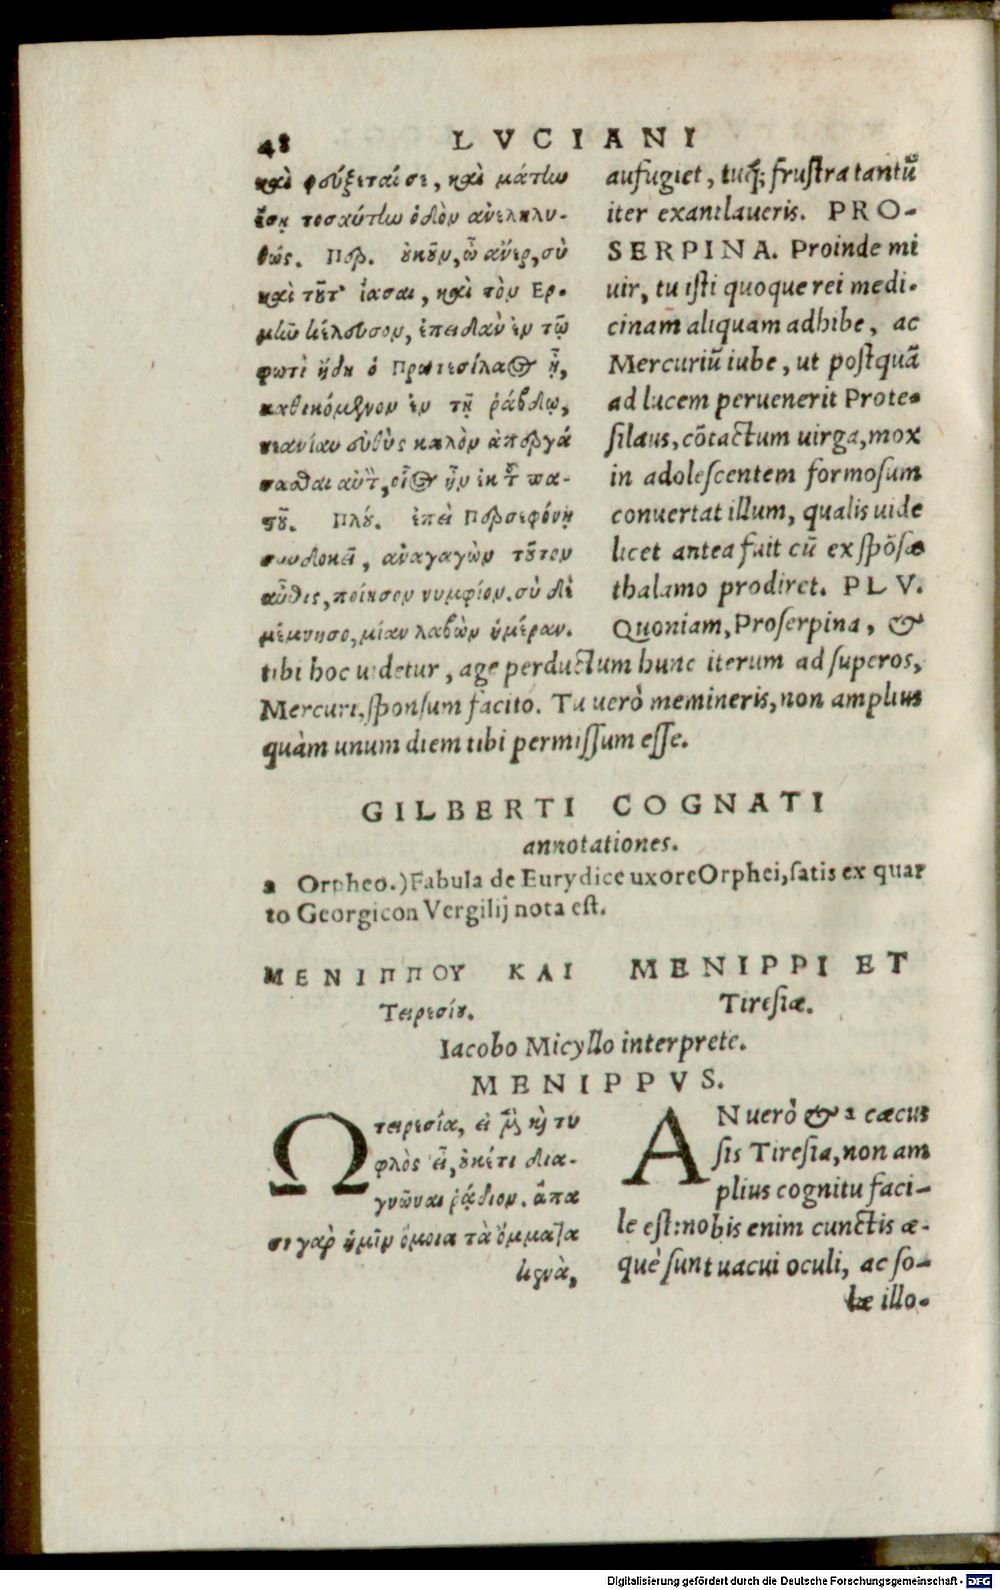 48 LVCIANI
καὶ φεύξεταί σε, καὶ μάτην
ἔσῃ τοσαύτην ὁδὸν ἀνεληλυ-
θώς. Περ. οὐκοῦν, ὦ ἄνερ, σὺ
καὶ τοῦτ' ἴασαι, καὶ τὸν Ερ-
μῆν κέλευσον, ἐπειδὰν ἐν τῷ
φωτὶ ἤδη ὁ Πρωτεσίλαος ᾖ,
καθικόμενον ἐν τῇ ῥάβδῳ,
νεανίαν εὐθὺς καλὸν ἀπεργά
σασθαι αὐτὸν, οἷος ἦν ἐκ τοῦ πα-
τοῦ. Πλού. ἐπεὶ Περσεφόνῃ
συνδοκεῖ, ἀναγαγὼν τοῦτον
αὖθις, ποίησον νυμφίον. σὺ δὲ
μέμνησο, μίαν λαβὼν ἡμέραν.
aufugiet, tuq́; frustra tantū
iter exantlaueris. PRO-
SERPINA. Proinde mi
uir, tu isti quoque rei medi-
cinam aliquam adhibe, ac
Mercuriū iube, ut postquā
ad lucem peruenerit Prote-
silaus, cōtactum uirga, mox
in adolescentem formosum
conuertat illum, qualis uide
licet antea fuit cū ex spōsæ
thalamo prodiret. PLV.
Quoniam, Proserpina, &
tibi hoc uidetur, age perductum hunc iterum ad superos,
Mercuri, sponsum facito. Tu uerò memineris, non amplius
quàm unum diem tibi permissum esse.
GILBERTI COGNATI
annotationes.
a Orpheo.) Fabula de Eurydice uxore Orphei, satis ex quar
to Georgicon Vergilij nota est.
ΜΕΝΙΠΠΟΥ ΚΑΙ
Τειρεσίου.
MENIPPI ET
Tiresiæ.
Iacobo Micyllo interprete.
MENIPPVS.
Ω τειρεσία, εἰ μὲν καὶ τυ
φλὸς εἶ, οὐκέτι δια-
γνῶναι ῥᾴδιον. ἅπα
σι γὰρ ἡμῖν ὅμοια τὰ ὄμματα
κενὰ,
AN uerò & a cæcus
sis Tiresia, non am
plius cognitu faci-
le est: nobis enim cunctis æ-
què sunt uacui oculi, ac so-
læ illo-
Digitalisierung gefördert durch die Deutsche Forschungsgemeinschaft - DFG